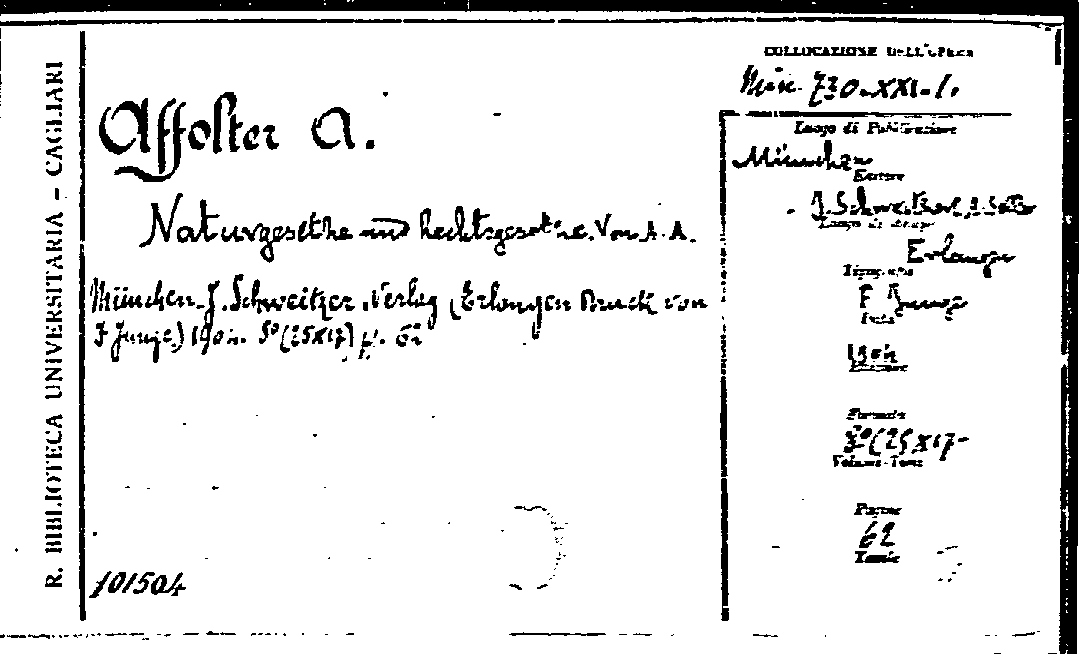 R. BIBLIOTECA UNIVERSITARIA - CAGLIARI
Affolter A.
Naturgesetze und Rechtsgesetze. Von A. A.
München. J. Schweitzer Verlag (Erlangen Druck von
F Junge) 1904. 8° (25x17) p. 62
101504
COLLOCAZIONE DELL'OPERA
Misc. 730-XXI-1.
Luogo di Pubblicazione
München
Editore
J. Schweitzer
Luogo di stampa
Erlangen
Tipografia
F Junge
Data
1904
Formato
8° (25x17
Volume-Tomo
Pagine
62
Tavole